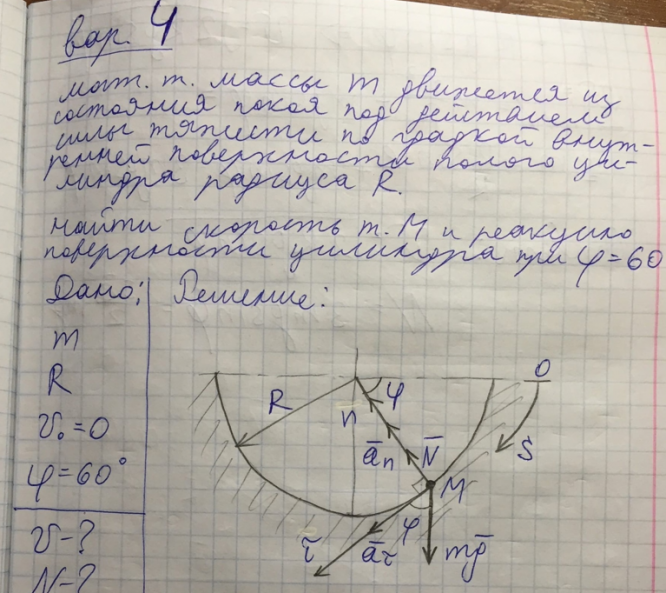 вар. 4
мат. т. массы m движется из
состояния покоя под действием
силы тяжести по гладкой внут-
ренней поверхности полого ци-
линдра радиуса R.
найти скорость т. M и реакцию
поверхности цилиндра при φ=60
Дано: Решение:
m
R
v₀=0
φ=60°
v-?
N-?
O
R
φ
n
a̅n
N̅
S
M
φ
τ̅
a̅τ
mg̅